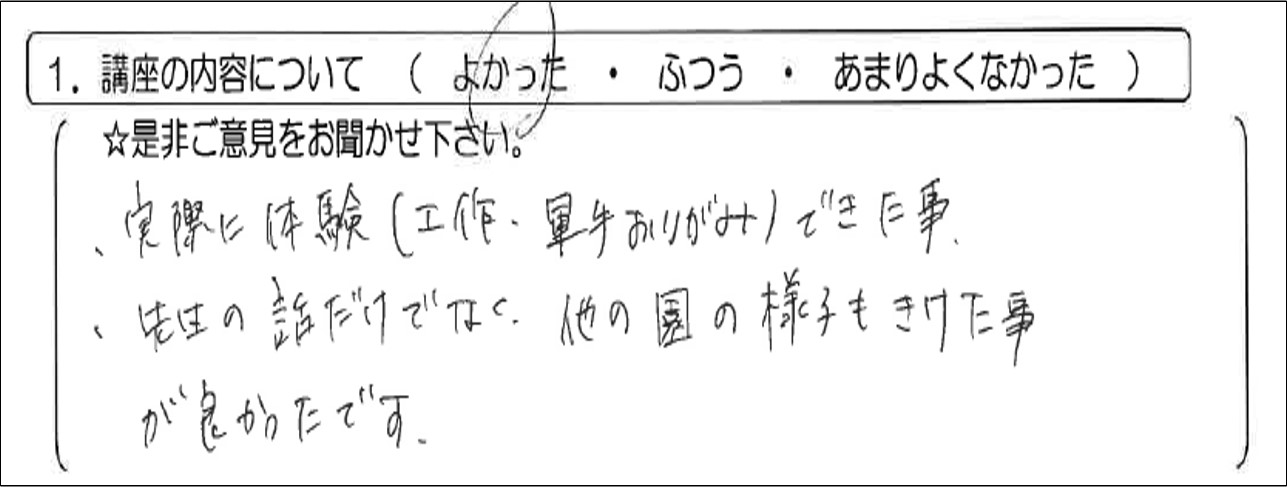 1．講座の内容について （ よかった ・ ふつう ・ あまりよくなかった ）
☆是非ご意見をお聞かせ下さい。
、実際に体験（工作、軍手おりがみ）できた事、
、先生の話だけでなく、他の園の様子もきけた事
が良かったです.